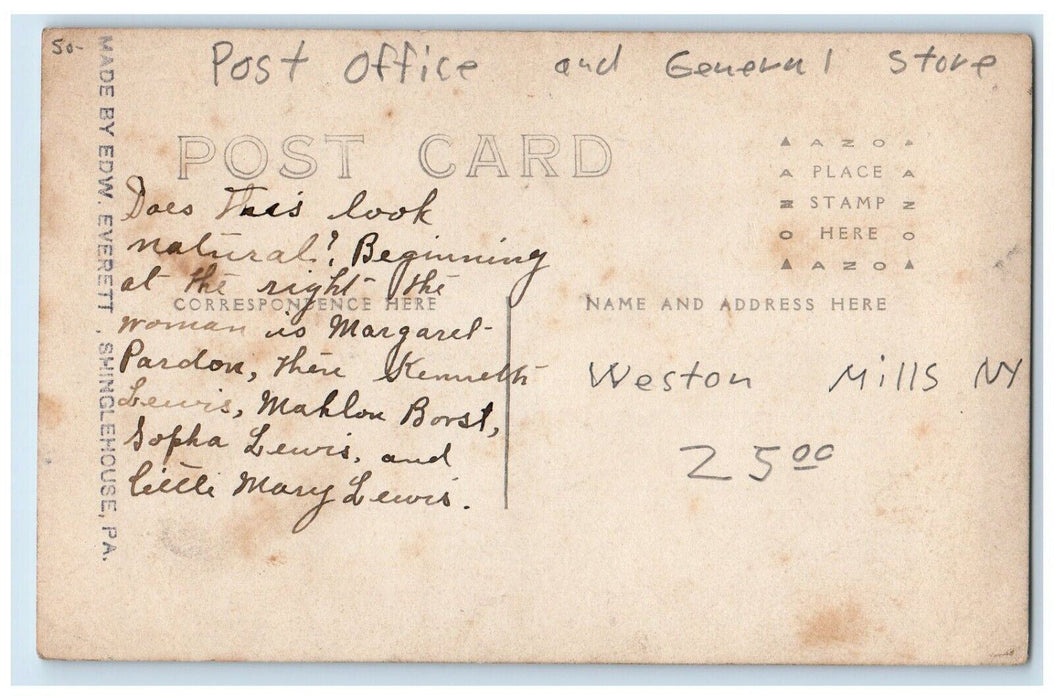 50-
Post Office and General Store
MADE BY EDW. EVERETT, SHINGLEHOUSE, PA.
POST CARD
AZO
PLACE
STAMP
HERE
AZO
Does this look
natural? Beginning
at the right the
CORRESPONDENCE HERE
NAME AND ADDRESS HERE
woman is Margaret
Pardon, then Kenneth
Lewis, Mahlon Borst,
Sopha Lewis, and
little Mary Lewis.
Weston Mills NY
25 00